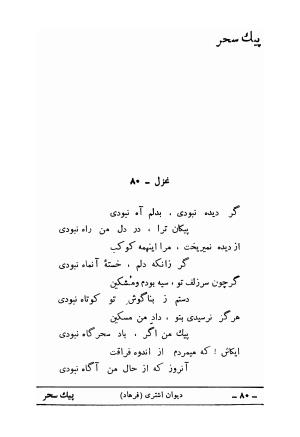 پیك سحر
غزل - ۸۰
گر دیده نبودی ، بدلم آه نبودی
پیکان ترا ، در دل من راه نبودی
از دیده نمیریخت ، مرا اینهمه کوکب
گر زانکه دلم ، خستهٔ آنماه نبودی
گرچون سرزلف تو ، سیه بودم ومشکین
دستم ز بناگوش تو کوتاه نبودی
هرگز نرسیدی بتو ، داد من مسکین
پیك من اگر ، باد سحرگاه نبودی
ایکاش ! که میمردم از اندوه فراقت
آنروز که از حال من آگاه نبودی
- ۸۰ - دیوان اشتری (فرهاد) پیك سحر